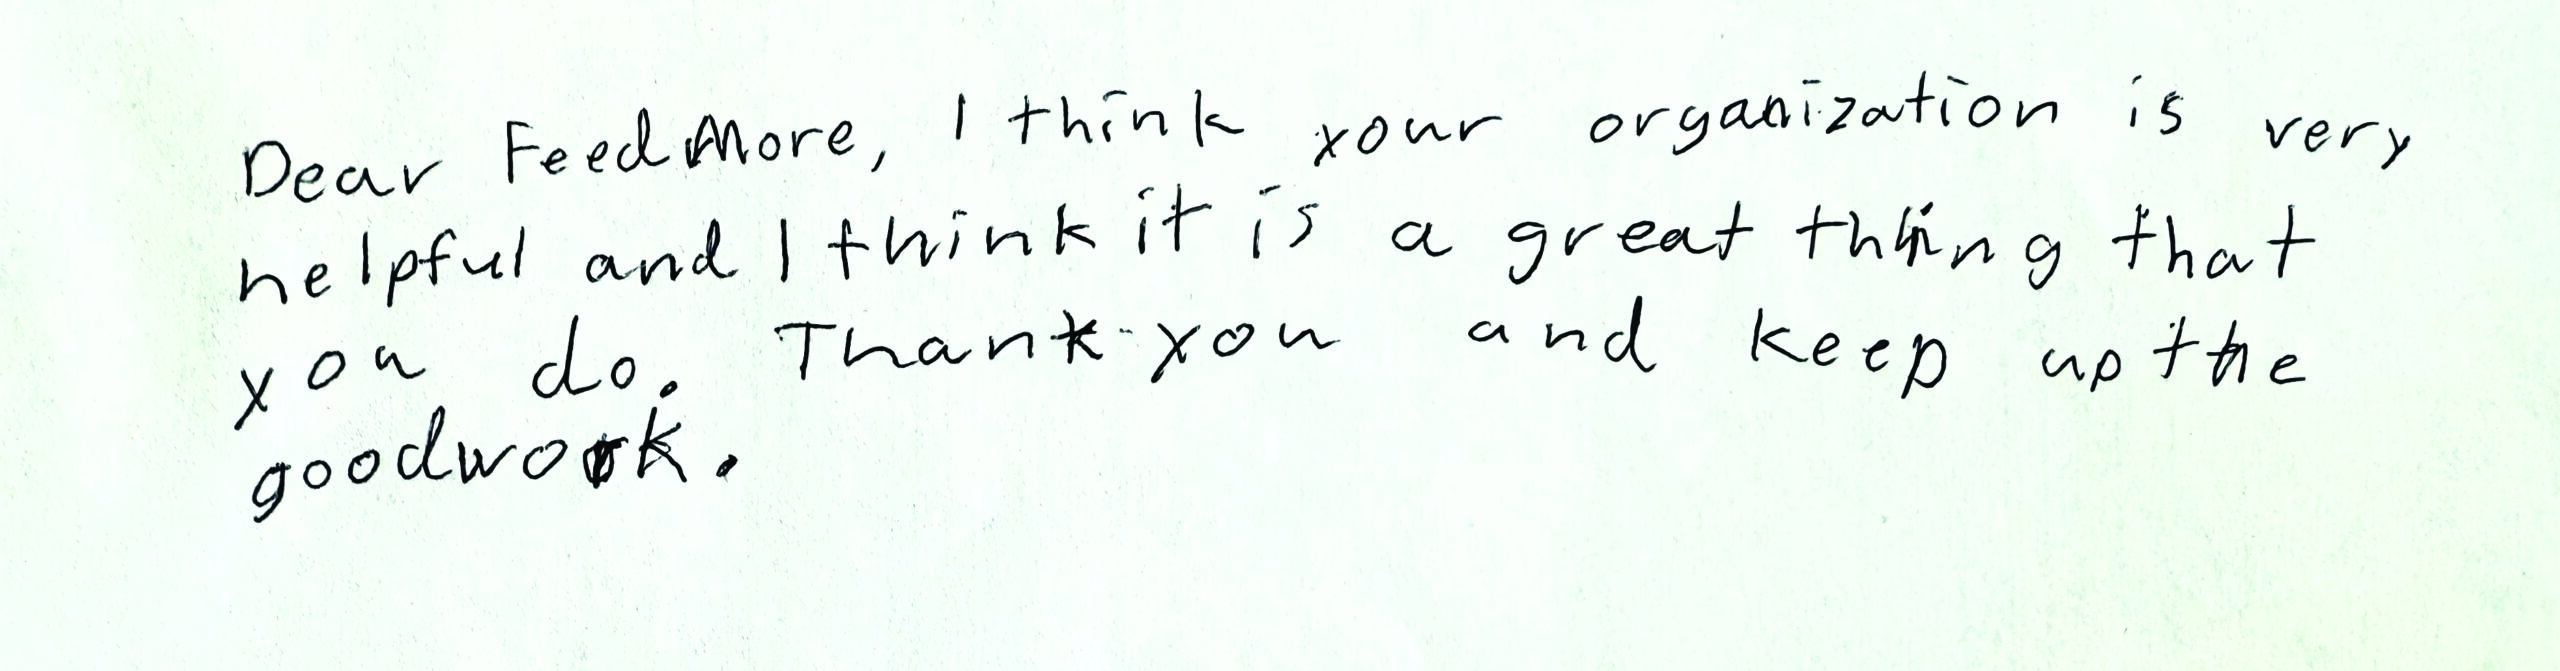 Dear FeedMore, I think your organization is very
helpful and I think it is a great thing that
you do. Thank you and keep up the
goodwork.